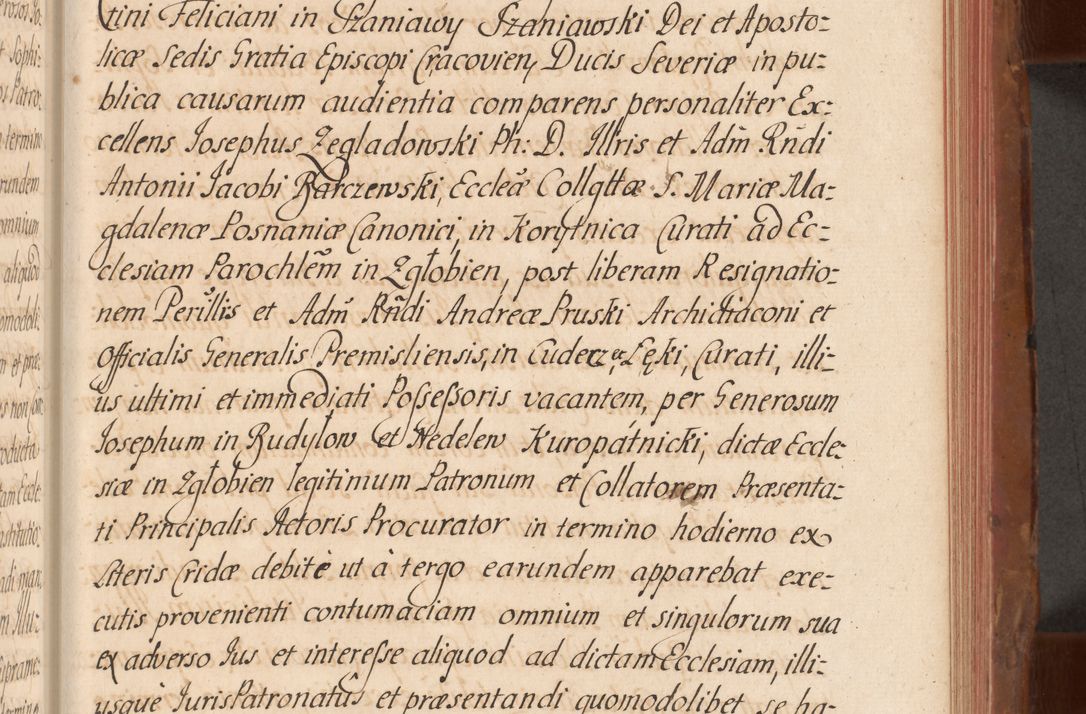 tini Feliciani in Szaniawy Szaniawski Dei et Aposto=
licæ Sedis Gratia Episcopi Cracovien, Ducis Severiæ in pu=
blica causarum audientia comparens personaliter Ex=
cellens Josephus Zegladowski Ph: D. Illris et Adm̃ Rñdi
Antonii Jacobi Barczewski, Eccleæ Collgttæ S. Mariæ Ma=
gdalenæ Posnaniæ Canonici, in Korytnica Curati ad Ec=
clesiam Parochlẽm in Zgłobien, post liberam Resignatio=
nem Perillis et Adm̃ Rñdi Andreæ Pruski Archidiaconi et
Officialis Generalis Premisliensis, in Cuderz et Lęki, Curati, illi=
ūs ultimi et immediati Possessoris vacantem, per Generosum
Josephum in Rudylow et Nedelew Kuropatnicki, dictæ Eccle=
siæ in Zgłobien legitimum Patronum et Collatorem Præsenta=
ti Principalis Actoris Procurator in termino hodierno ex
Literis Cridæ debitè ut à tergo earundem apparebat exe=
cutis provenienti contumaciam omnium et singulorum sua
ex adverso Jus et interesse aliquod ad dictam Ecclesiam, illi=
usque JurisPatronatūs et præsentandi quomodolibet se ha=